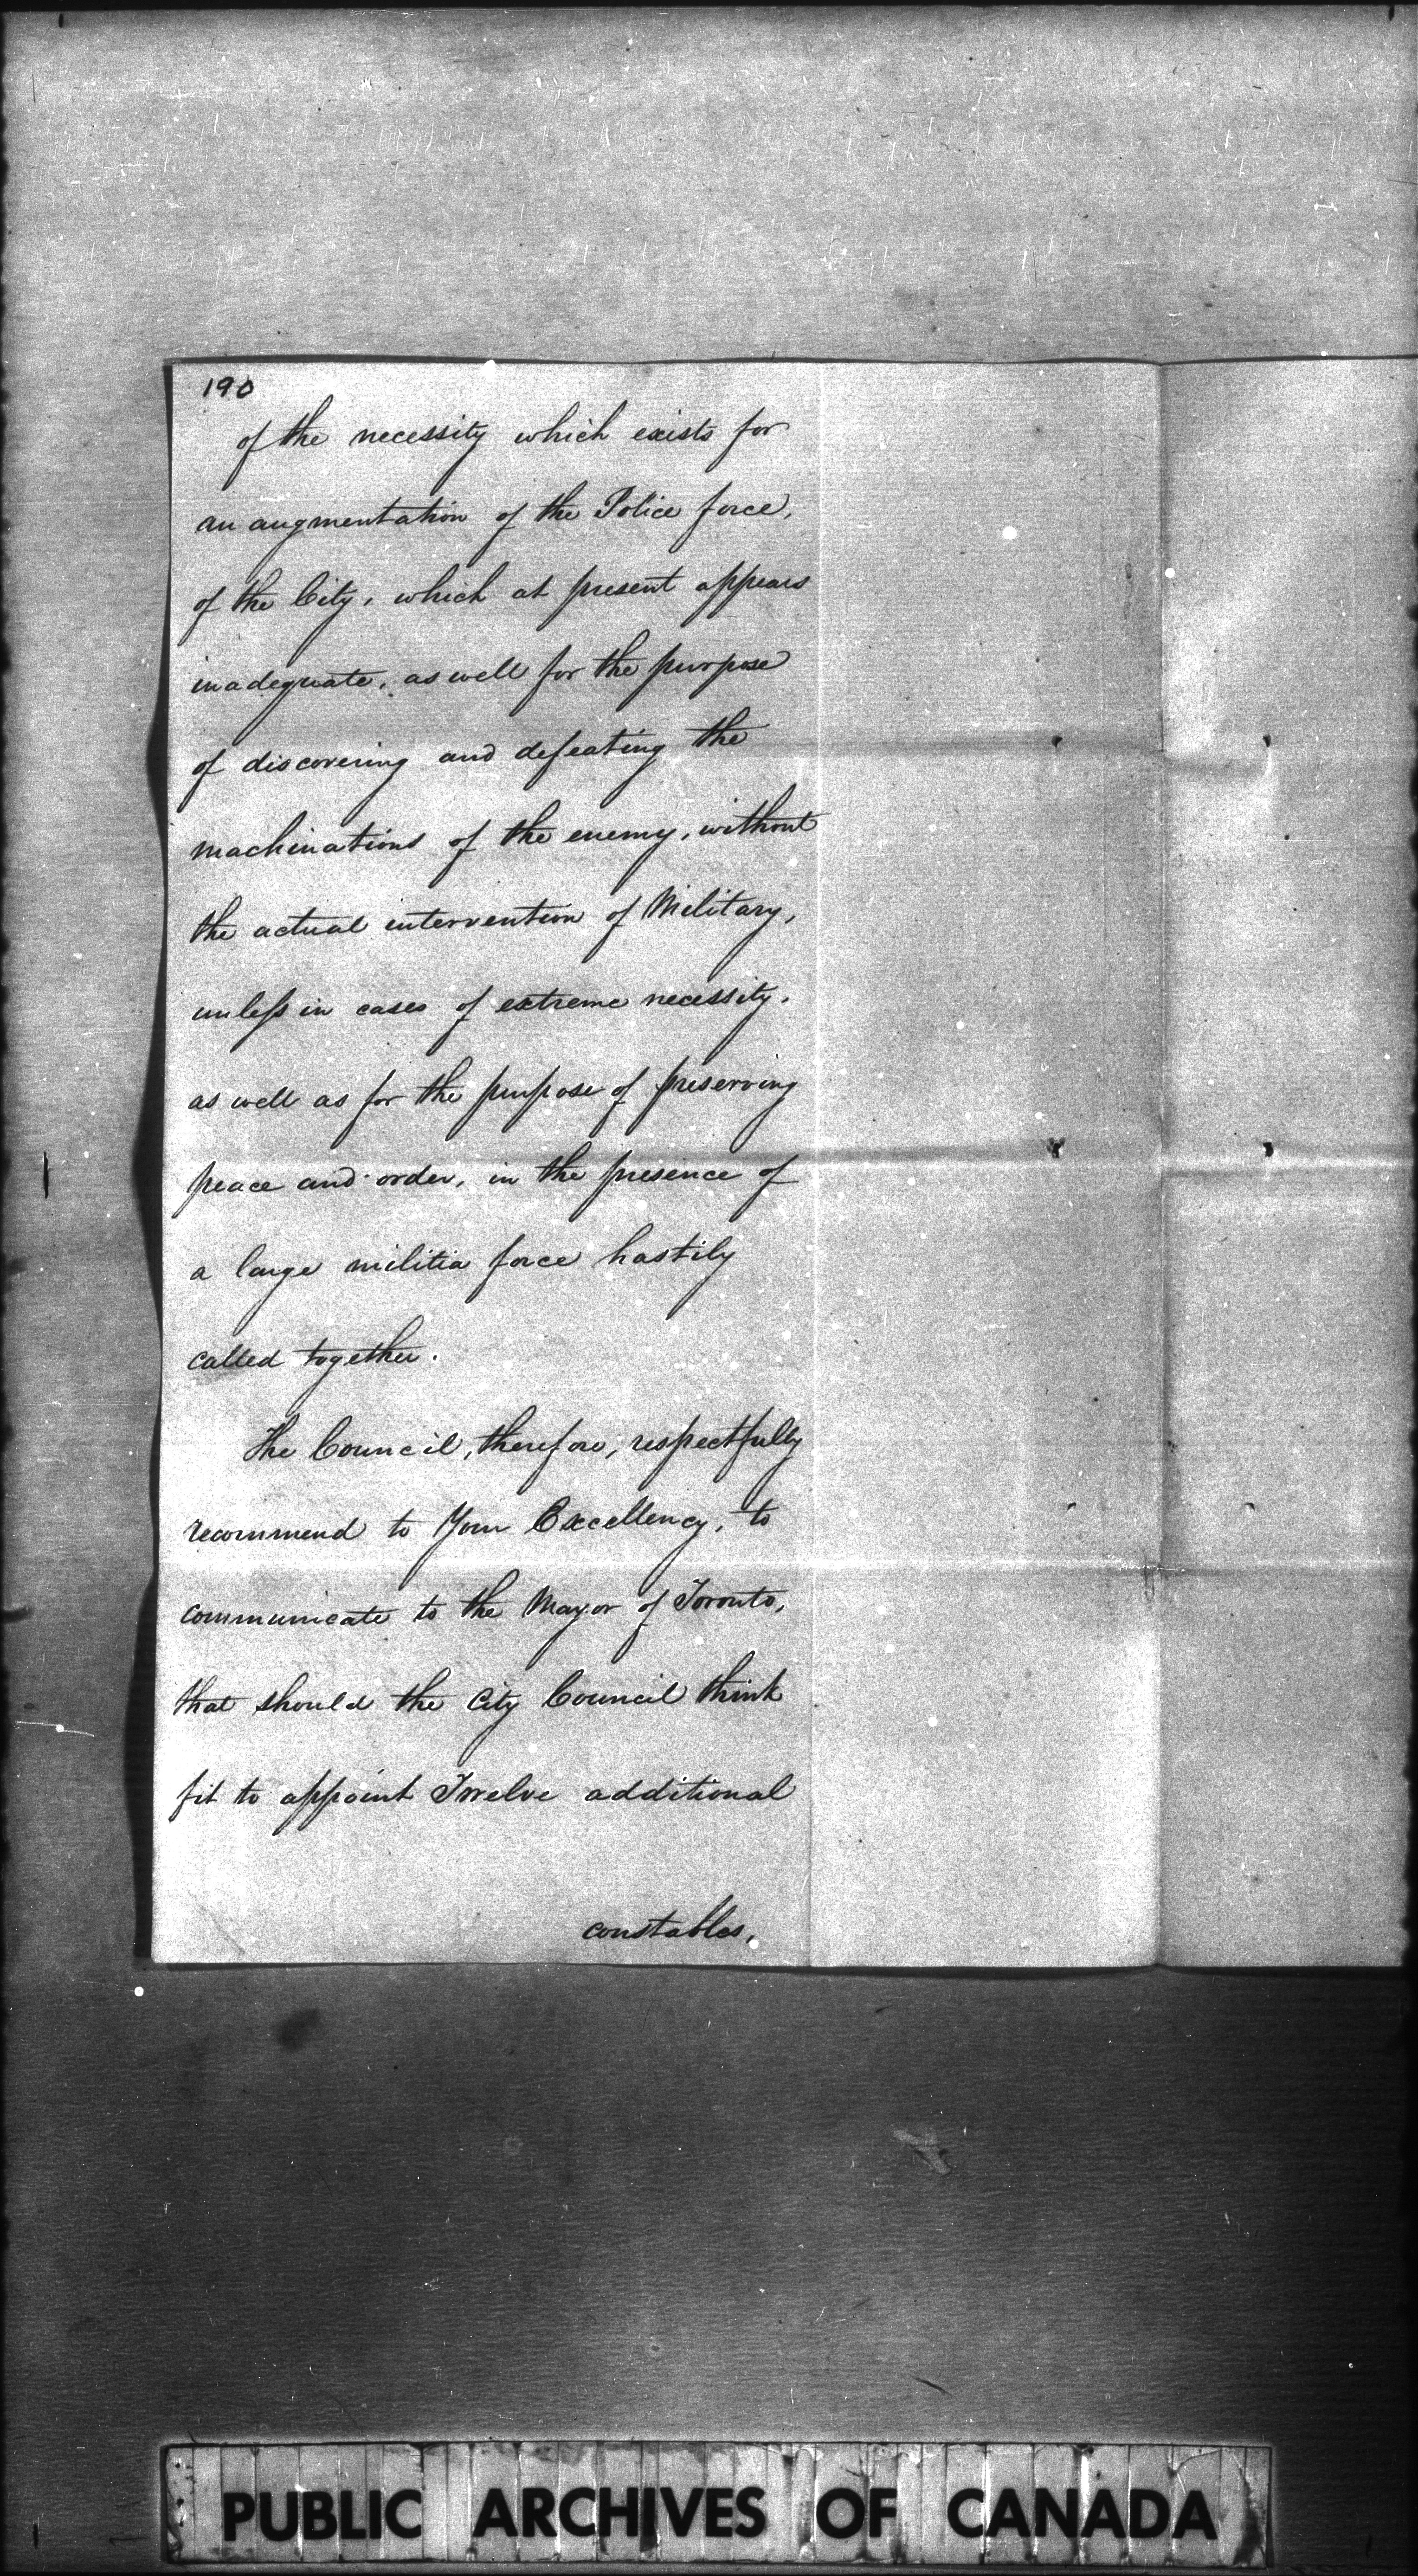 190
of the necessity which exists for
an augmentation of the Police force,
of the City, which at present appears
inadequate, as well for the purpose
of discovering and defeating the
machinations of the enemy, without
the actual intervention of Military,
unless in cases of extreme necessity,
as well as for the purpose of preserving
peace and order, in the presence of
a large militia force hastily
called together.
The Council, therefore, respectfully
recommend to Your Excellency, to
communicate to the Mayor of Toronto,
that should the City Council think
fit to appoint Twelve additional
constables,
PUBLIC ARCHIVES OF CANADA